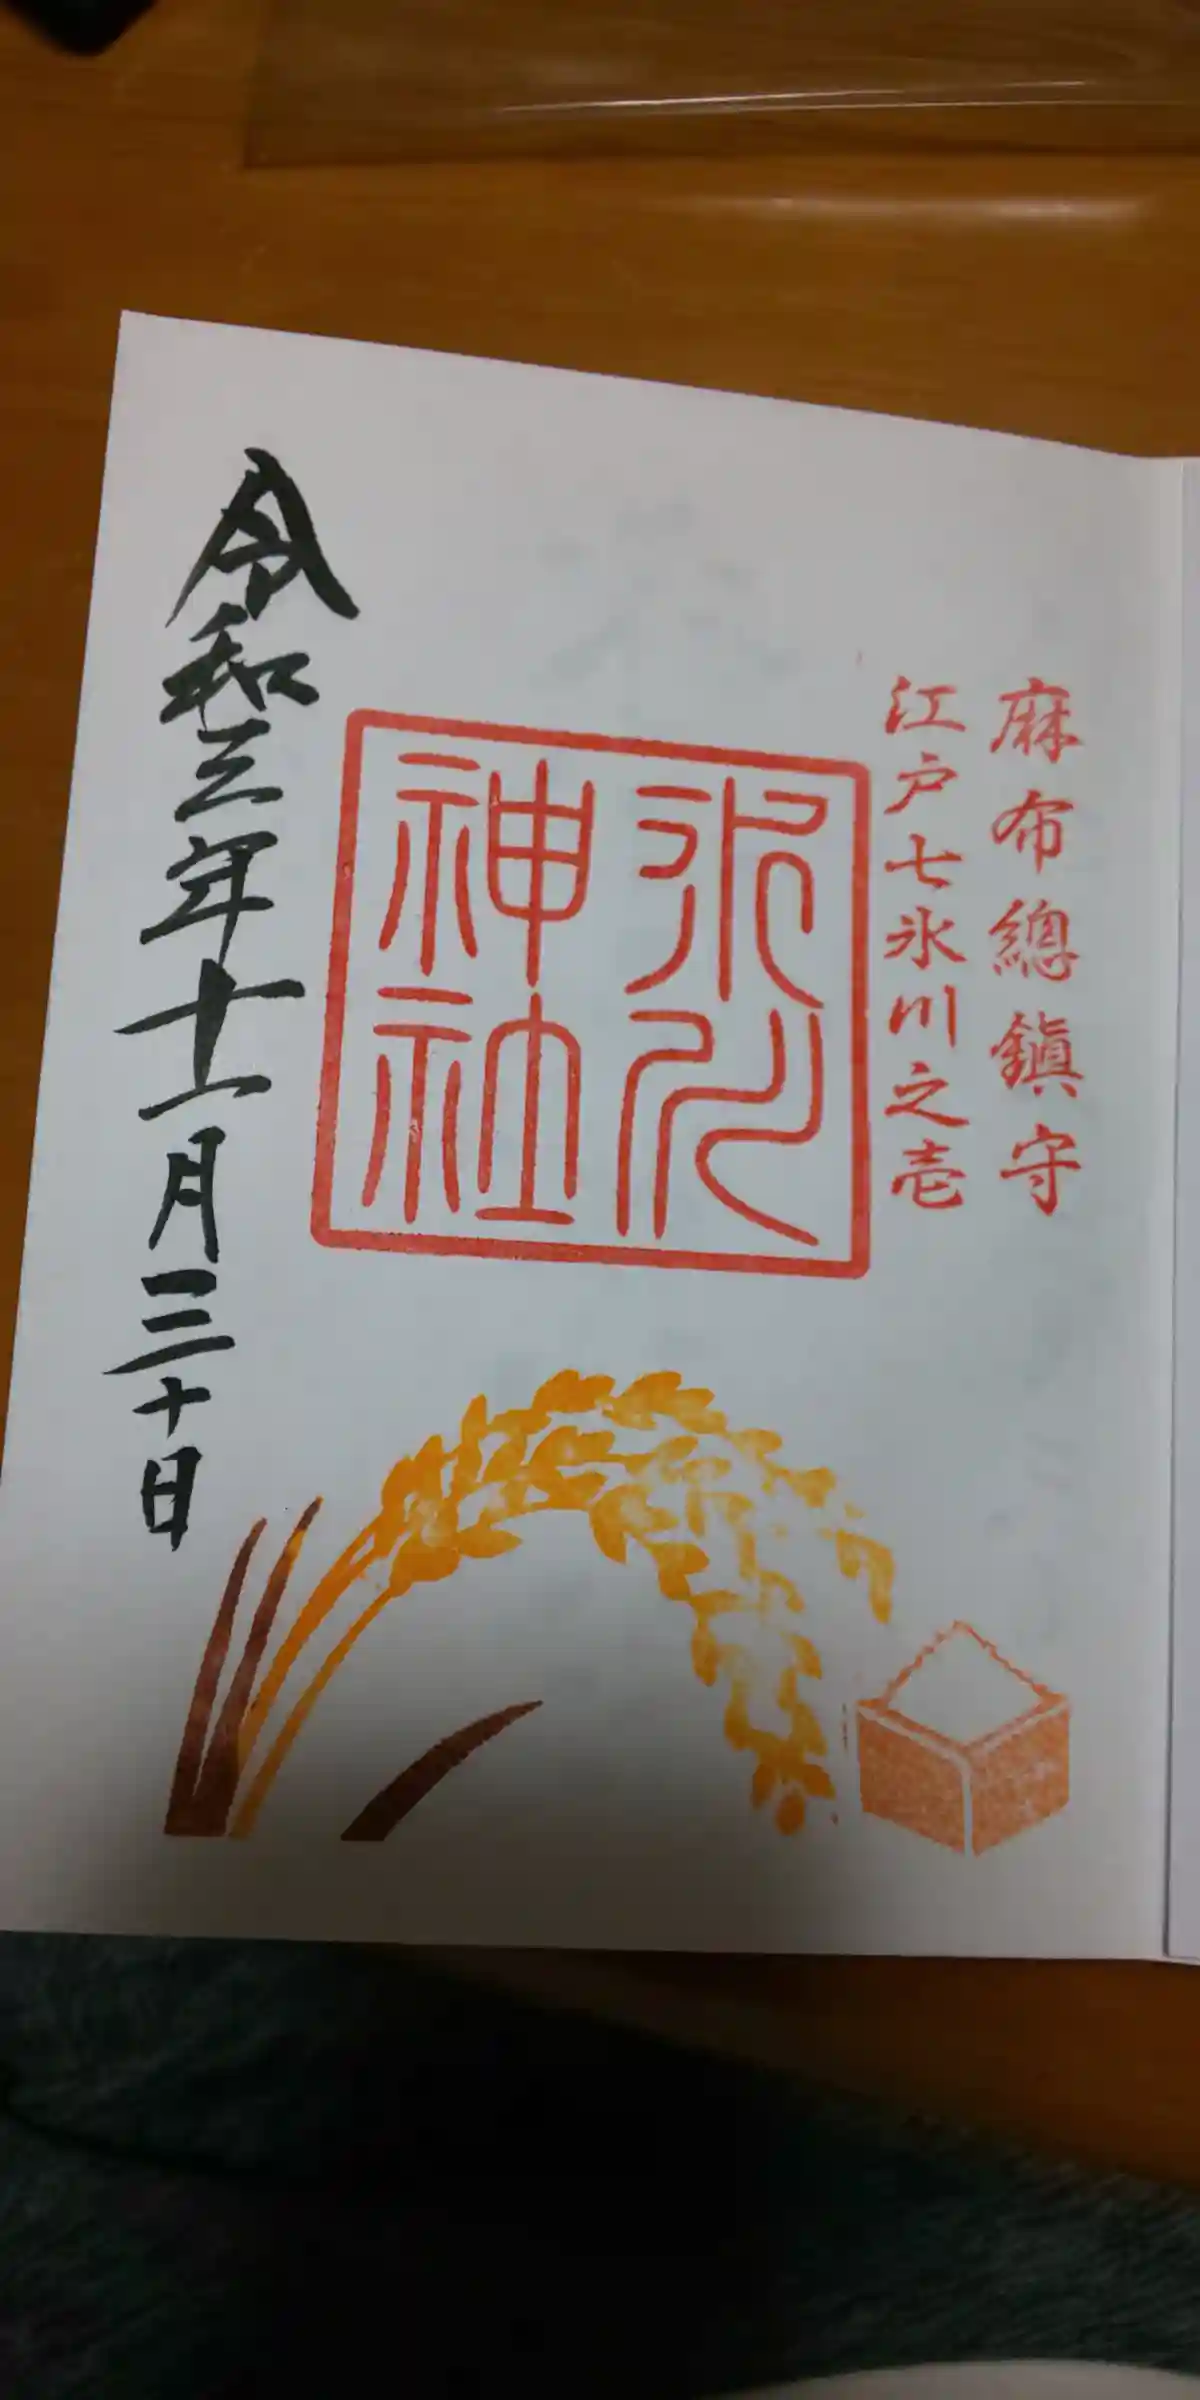 麻布總鎮守
江戸七氷川之壱
氷川
神社
令和三年十一月三十日